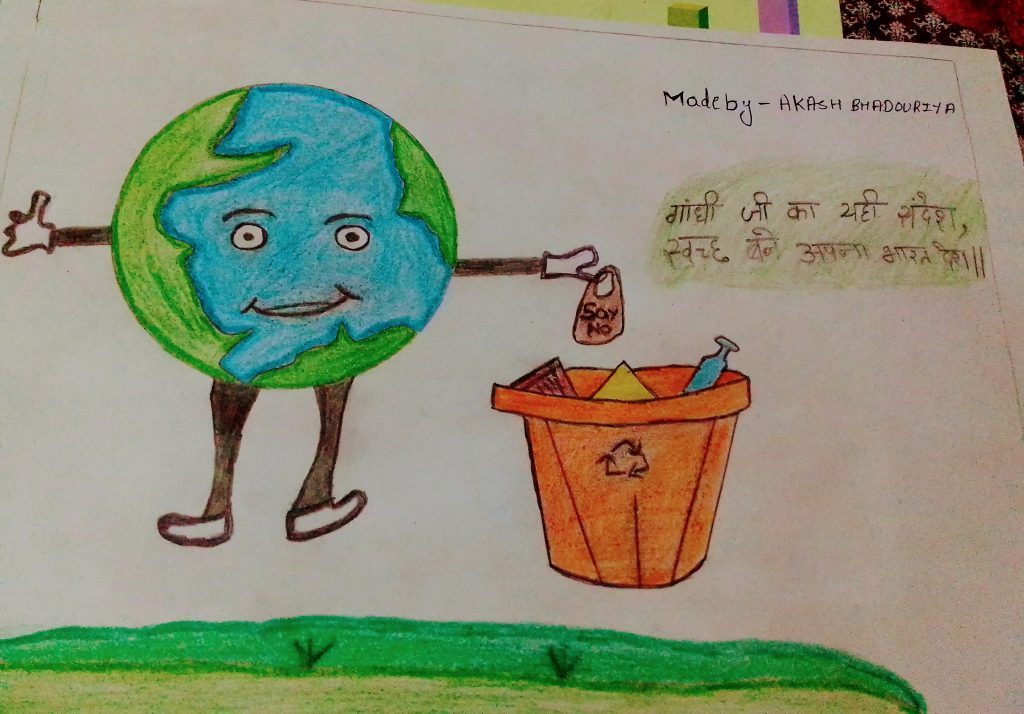 Made by - AKASH BHADOURIYA
गांधी जी का यही संदेश,
स्वच्छ बने अपना भारत देश॥
Say
No